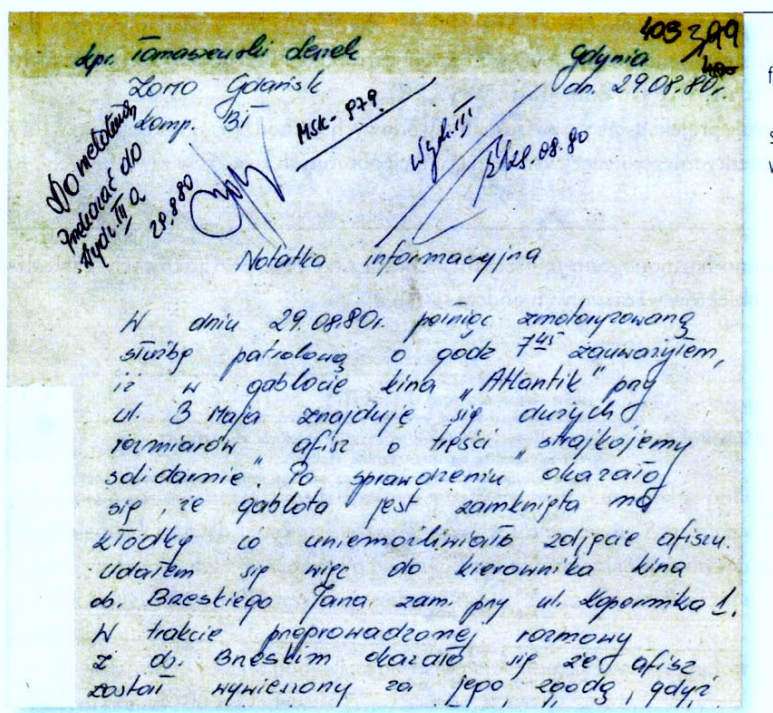 403 399
400
kpr. Tomaszewski Leszek
Gdynia
ZOMO Gdańsk
dn. 29.08.80r.
komp. BI
MSK- 979.
Wydz. III
29.08.80
Przekazać do
Wydz. III a
29.8.80
Notatka informacyjna
W dniu 29.08.80r. pełniąc zmotoryzowaną
służbę patrolową o godz 7⁴⁵ zauważyłem,
iż w gablocie kina „Atlantik" przy
ul. 3 Maja znajduje się dużych
rozmiarów afisz o treści „strajkojemy
solidarnie". Po sprawdzeniu okazało
się, że gablota jest zamknięta na
kłódkę co uniemożliwiało zdjęcie afiszu.
Udałem się więc do kierownika kina
ob. Brzeskiego Jana zam. przy ul. Kopernika 1.
W trakcie przeprowadzonej rozmowy
z ob. Brzeskim okazało się że afisz
został wywieszony za jego zgodą, gdyż